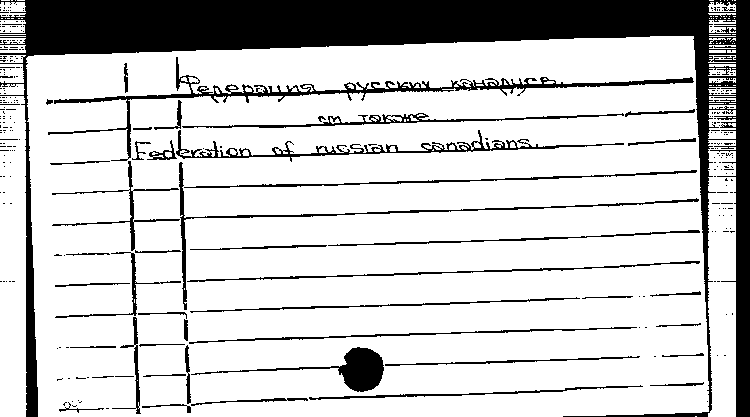 Федерация русских канадцев.
см. также
Federation of russian canadians.